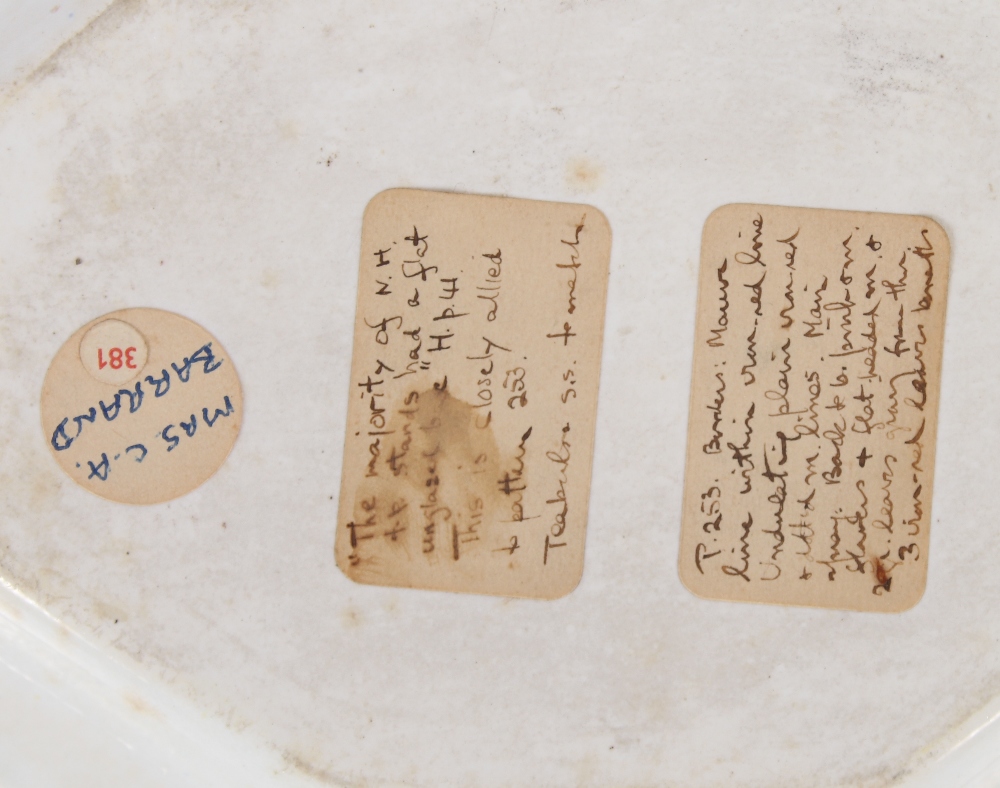 381
MRS C.A.
BARRAND
"The majority of N.H.
t.p. stands had a flat
unglazed base" H. p. 41
This is closely allied
to pattern 253.
Teabowl & s.s. to match
P. 253. Border: Mauve
line within iron-red line
Undulating plain iron-red
& dotted m. lines. Main
spray: Back to b. pink om.
+ flat-headed m. &
2 gr. leaves grow from thin
3 iron-red leaves beneath